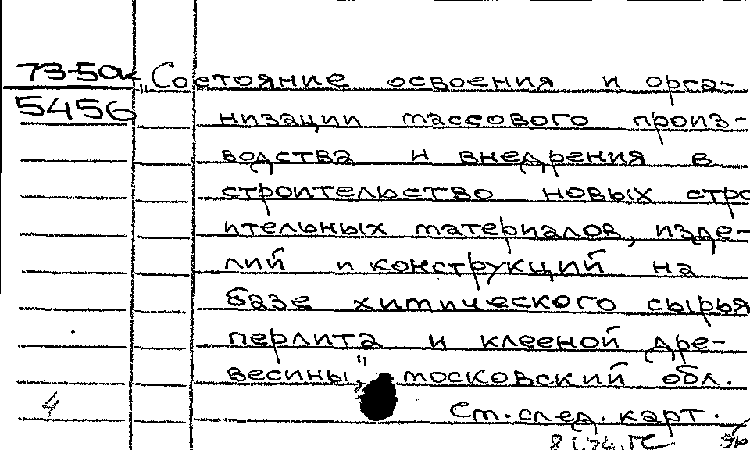 73-50к "Состояние освоения и орга-
5456 низации массового произ-
водства и внедрения в
строительство новых стро
ительных материалов, изде-
лий и конструкций на
базе химического сырья
перлита и клееной дре-
весины", московский обл.
4 См. след. карт.